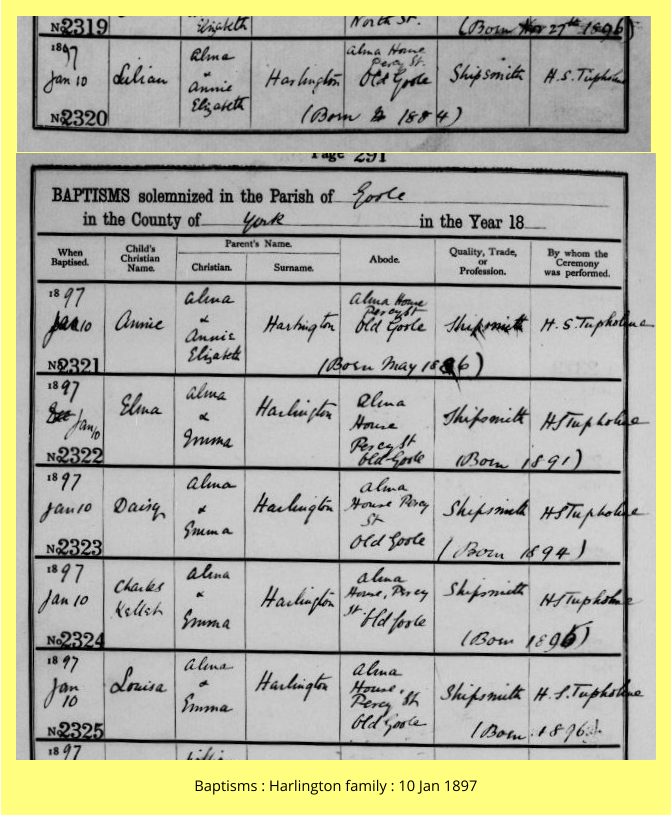 Elizabeth North St.
No 2319 (Born Nov 27th 1896)
1897 Jan 10 Lilian Alma & Annie Elizabeth Harlington Alma House Percy St. Old Goole Shipsmith H. S. Tupholme
No 2320 (Born 1884)
Page 291
BAPTISMS solemnized in the Parish of Goole
in the County of York in the Year 18
When Baptised. Child's Christian Name. Parent's Name. Christian. Surname. Abode. Quality, Trade, or Profession. By whom the Ceremony was performed.
1897 Jan 10 Annie Alma & Annie Elizabeth Harlington Alma House Percy St Old Goole Shipsmith H. S. Tupholme
No 2321 (Born May 1886)
1897 Jan 10 Elma Alma & Emma Harlington Alma House Percy St Old Goole Shipsmith HSTupholme
No 2322 (Born 1891)
1897 Jan 10 Daisy Alma & Emma Harlington Alma House Percy St Old Goole Shipsmith HSTupholme
No 2323 (Born 1894)
1897 Jan 10 Charles Kellet Alma & Emma Harlington Alma House, Percy St. Old Goole Shipsmith HSTupholme
No 2324 (Born 1895)
1897 Jan 10 Louisa Alma & Emma Harlington Alma House, Percy St. Old Goole Shipsmith H. S. Tupholme
No 2325 (Born 1896)
1897
Baptisms : Harlington family : 10 Jan 1897